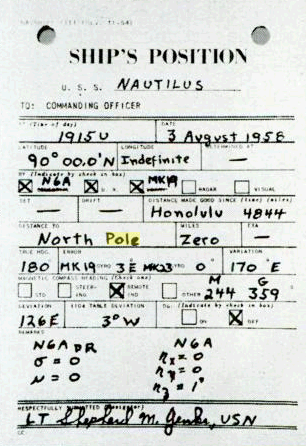 SHIP'S POSITION
U. S. S. NAUTILUS
TO: COMMANDING OFFICER
AT (Time of day) DATE
1915U 3 August 1958
LATITUDE LONGITUDE DETERMINED AT
90° 00.0'N Indefinite —
BY (Indicate by check in box)
N6A D. R. MK19 RADAR VISUAL
SET DRIFT DISTANCE MADE GOOD SINCE (time) (miles)
— — Honolulu 4844
DISTANCE TO MILES ETA
North Pole Zero —
TRUE HDG. ERROR VARIATION
180 MK19 GYRO 3E MK23 GYRO 0° 170° E
MAGNETIC COMPASS HEADING (Check one) M G
STD STEERING REMOTE IND OTHER 244 359°
DEVIATION 1104 TABLE DEVIATION DG: (Indicate by check in box)
126E 3°W ON OFF
REMARKS
N6A DR N6A
= 0 = 0
= 0 = 0
= 1°
RESPECTFULLY SUBMITTED (Navigator)
LT Shepherd M. Jenks, USN